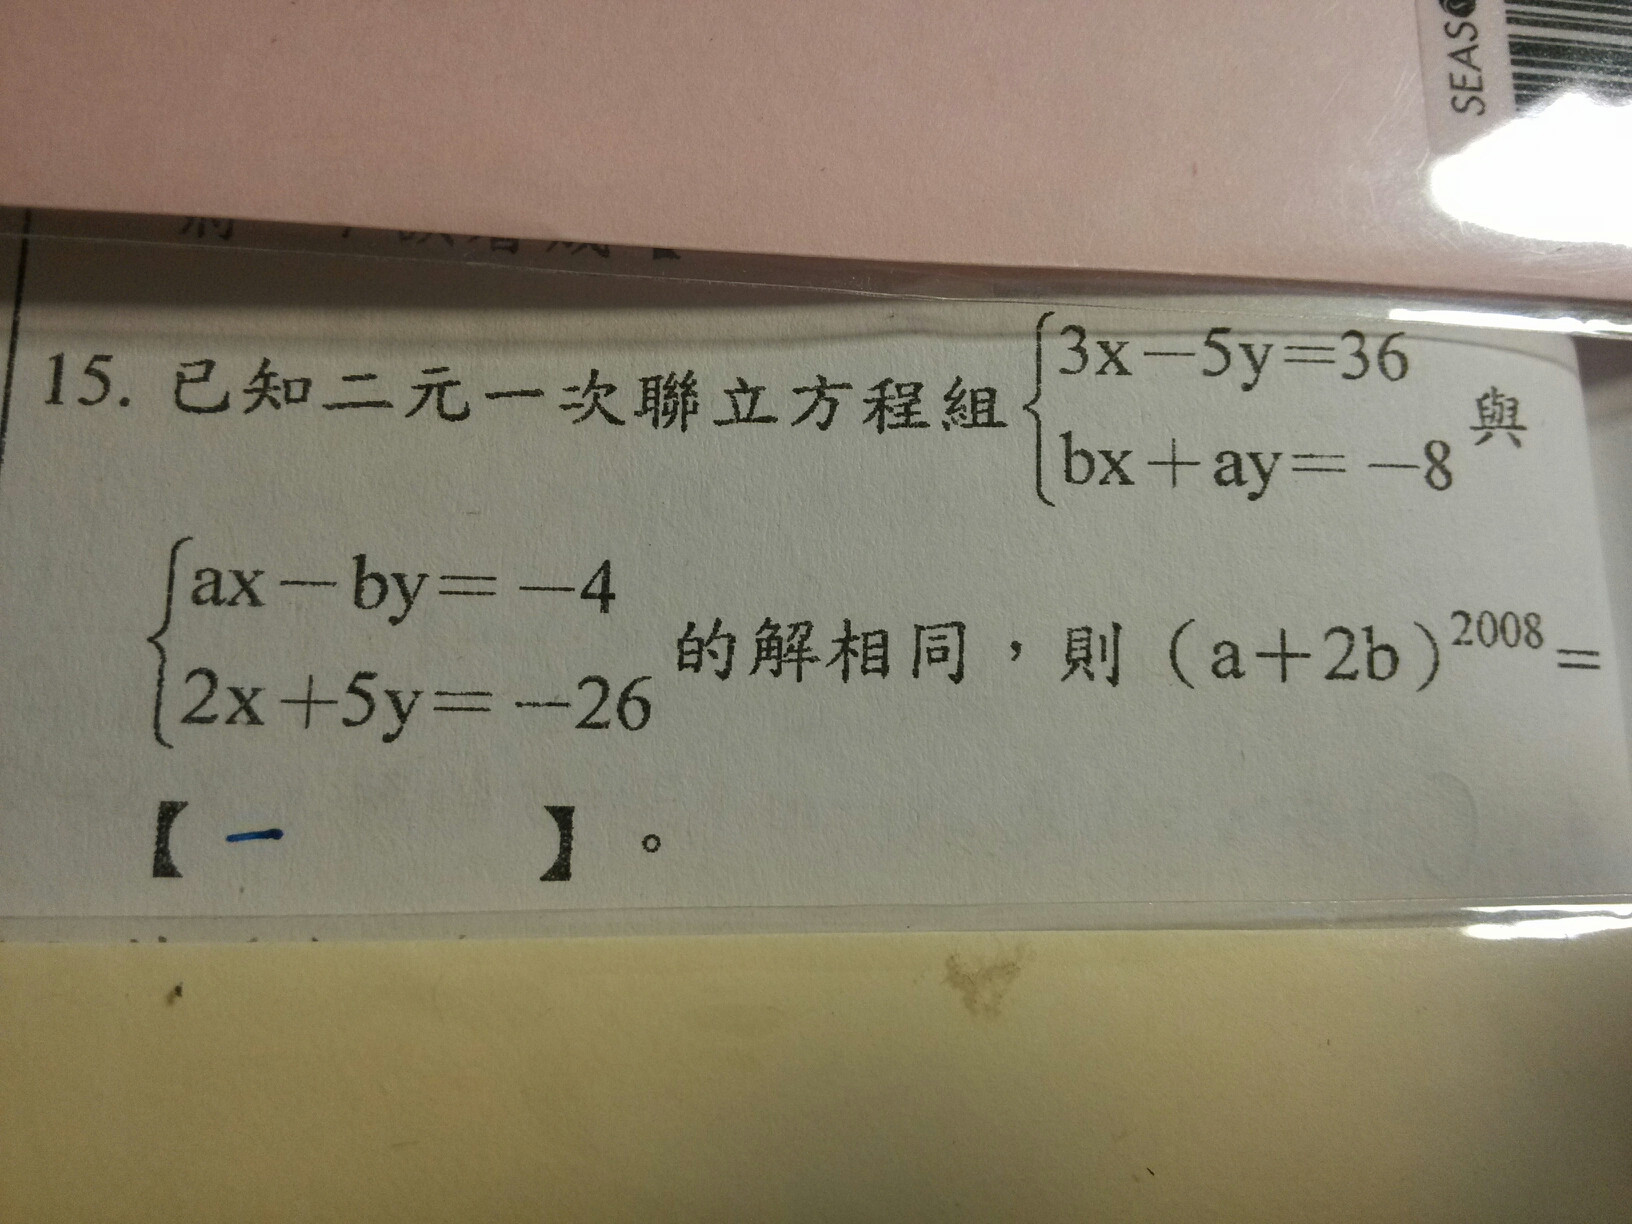 SEAS
15. 已知二元一次聯立方程組{3x－5y＝36
bx＋ay＝－8 與
{ax－by＝－4
2x＋5y＝－26 的解相同，則（a＋2b）^2008＝
【 一 】。